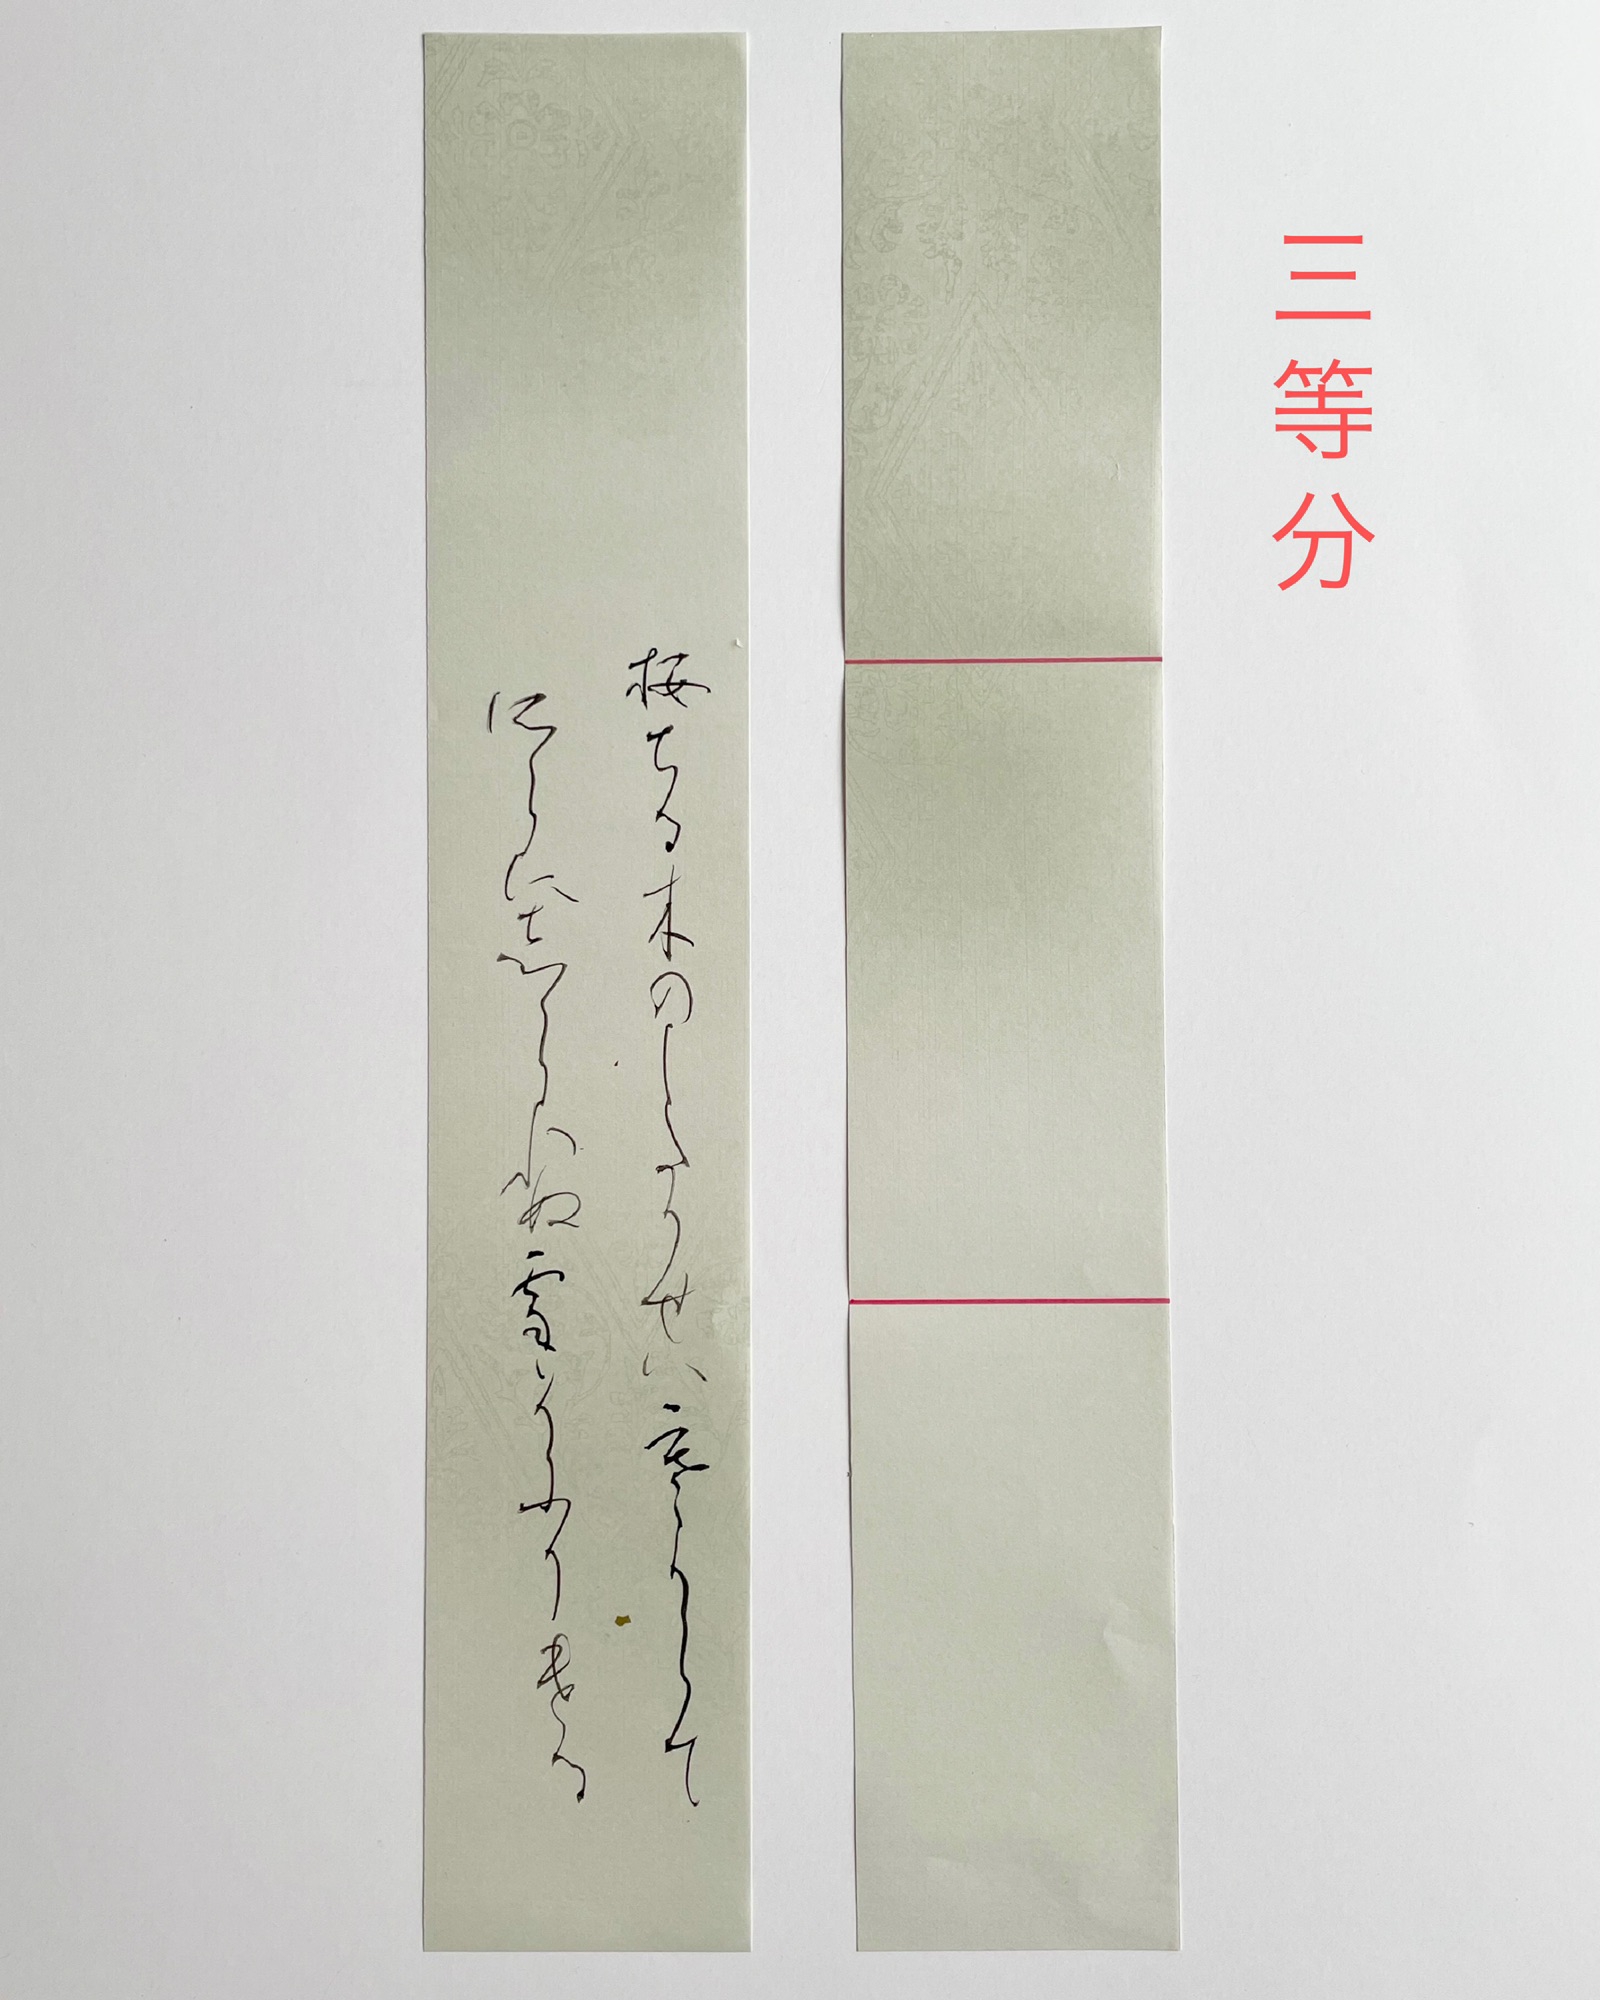 三等分
桜ちる木のしたかせハ寒からて
そらにしられぬ雪そふりける